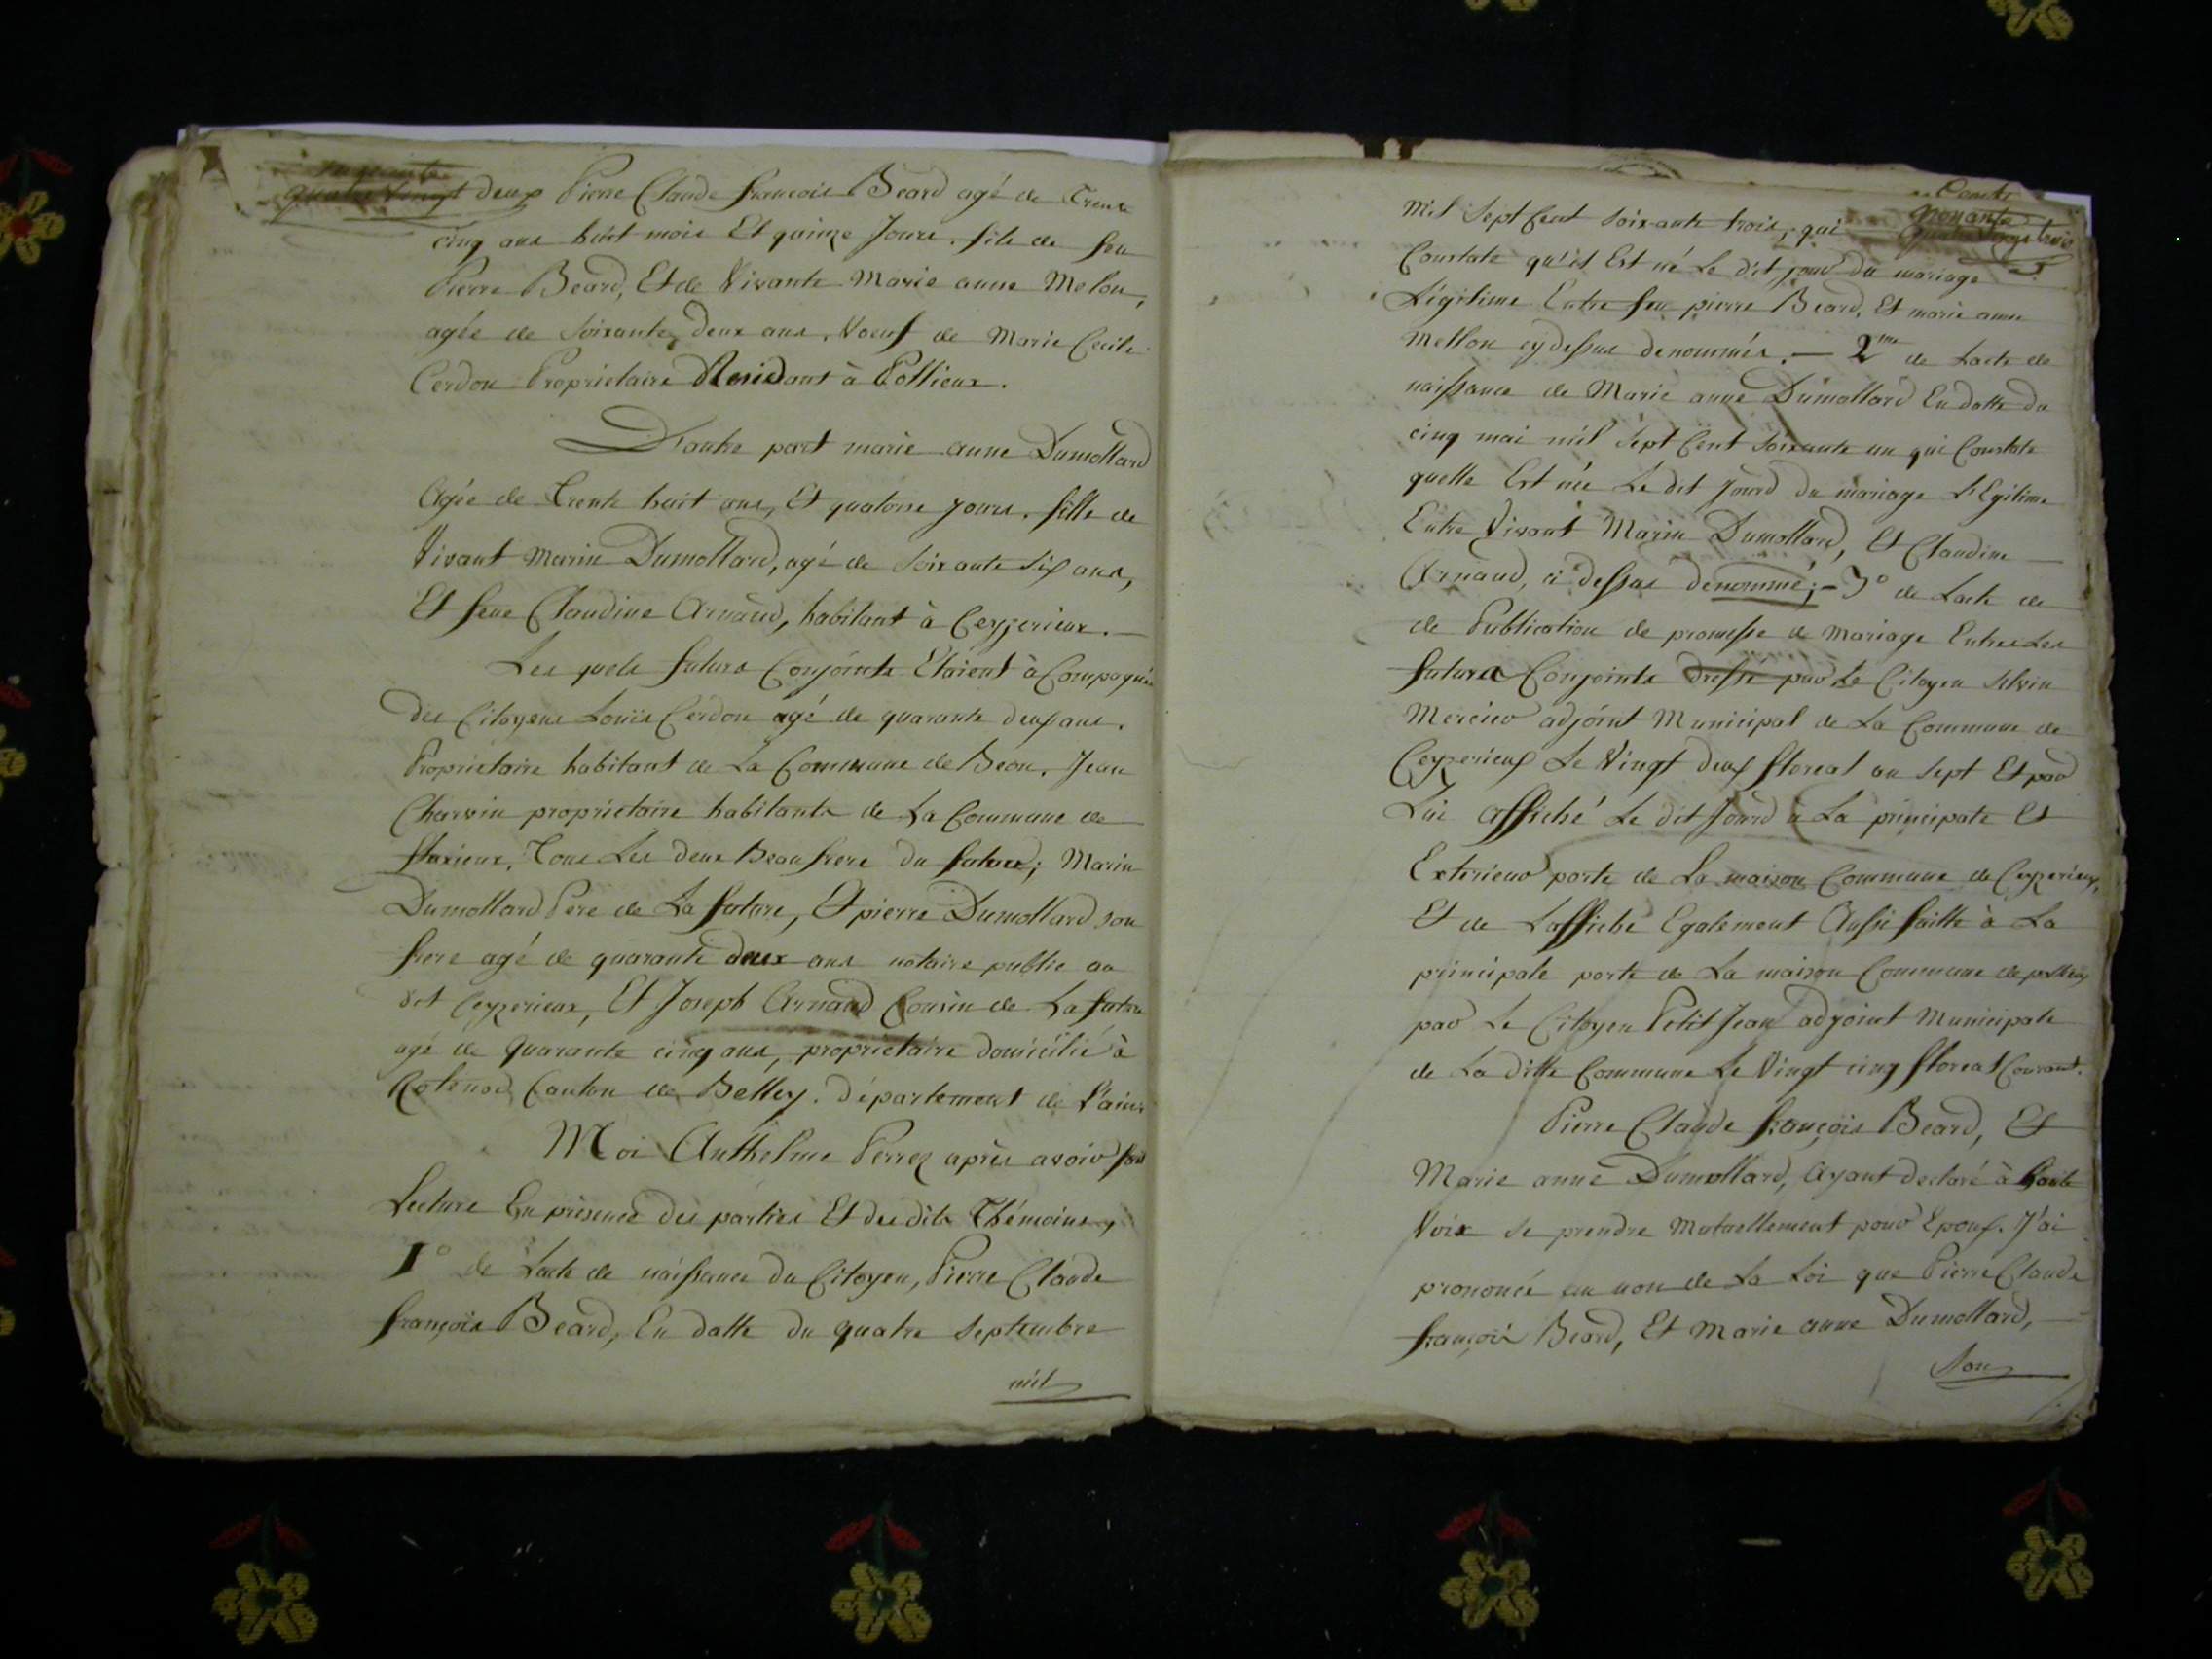 quatre vingt deux Pierre Claude francois Beard agé de Trente
cinq ans huit mois Et quinze Jours. fils de feu
Pierre Beard, Et de Vivante Marie anne Melon,
agée de soixante deux ans. Voeuf de Marie Cecile
Cerdon Proprietaire Residant à Pollieux.
D'autre part marie anne Dumollard
Agée de Trente huit ans, Et quatorse jours. fille de
Vivant Marin Dumollard, agé de soixante six ans,
Et feue Claudine Arnaud, habitant à Ceyzerieux.
Les quels futurs Conjoints Etaient àCompagnés
des Citoyens Louis Cerdon agé de quarante deux ans.
Proprietaire habitant de La Commune de Beon. Jean
Charvin proprietaire habitante de La Commune de
flaxieux. Tous Les deux Beau frere du futur; Marin
Dumollard Pere de La future, Et pierre Dumollard son
frere agé de quarante deux ans notaire public au
dit Ceyzerieux, Et Joseph Arnaud Cousin de La future
agé de quarante cinq ans, proprietaire domicilié à
Rotonod Canton de Belley. département de L'ain.
Moi Anthelme Perrez après avoir fait
Lecture En présence des parties Et des dits Thémoins,
1° de Lacte de naissance du Citoyen, Pierre Claude
françois Beard, En datte du quatre septembre
mil
Cents
nonante
quatre vingt trois
mil sept Cent soixante trois, qui
Constate qu'il Est né Le dit jour du mariage
Légitime Entre feu pierre Beard, Et marie anne
Mellon cy dessus denommés. — 2me de Lacte de
naissance de Marie anne Dumollard En datte du
cinq mai mil sept Cent soixante un qui Constate
quelle Est née Le dit jourd du mariage LEgitime
Entre Vivant Marin Dumollard, Et Claudine
Arnaud, ci dessus denommé; — 3° de Lacte de
de Publication de promesse de Mariage Entre Les
futurs Conjoints dressé par Le Citoyen
Mercier adjoint Municipal de La Commune de
Ceyzerieux Le Vingt deux floreal an sept Et par
Lui affiché Le dit Jourd à La principale Et
Exterieur porte de La maison Commune de Ceyzerieux,
Et de Laffiche Egalement Aussi faitte à La
principale porte de La maison Commune de pollieux
par Le Citoyen Petit Jean adjoint Municipale
de La ditte Commune Le Vingt cinq floreal Courant.
Pierre Claude françois Beard, Et
Marie anne Dumollard, Ayant declaré à haute
Voix se prendre Mutuellement pour Epoux. J'ai
prononcé au nom de La Loi que Pierre Claude
françois Beard, Et Marie anne Dumollard,
Son